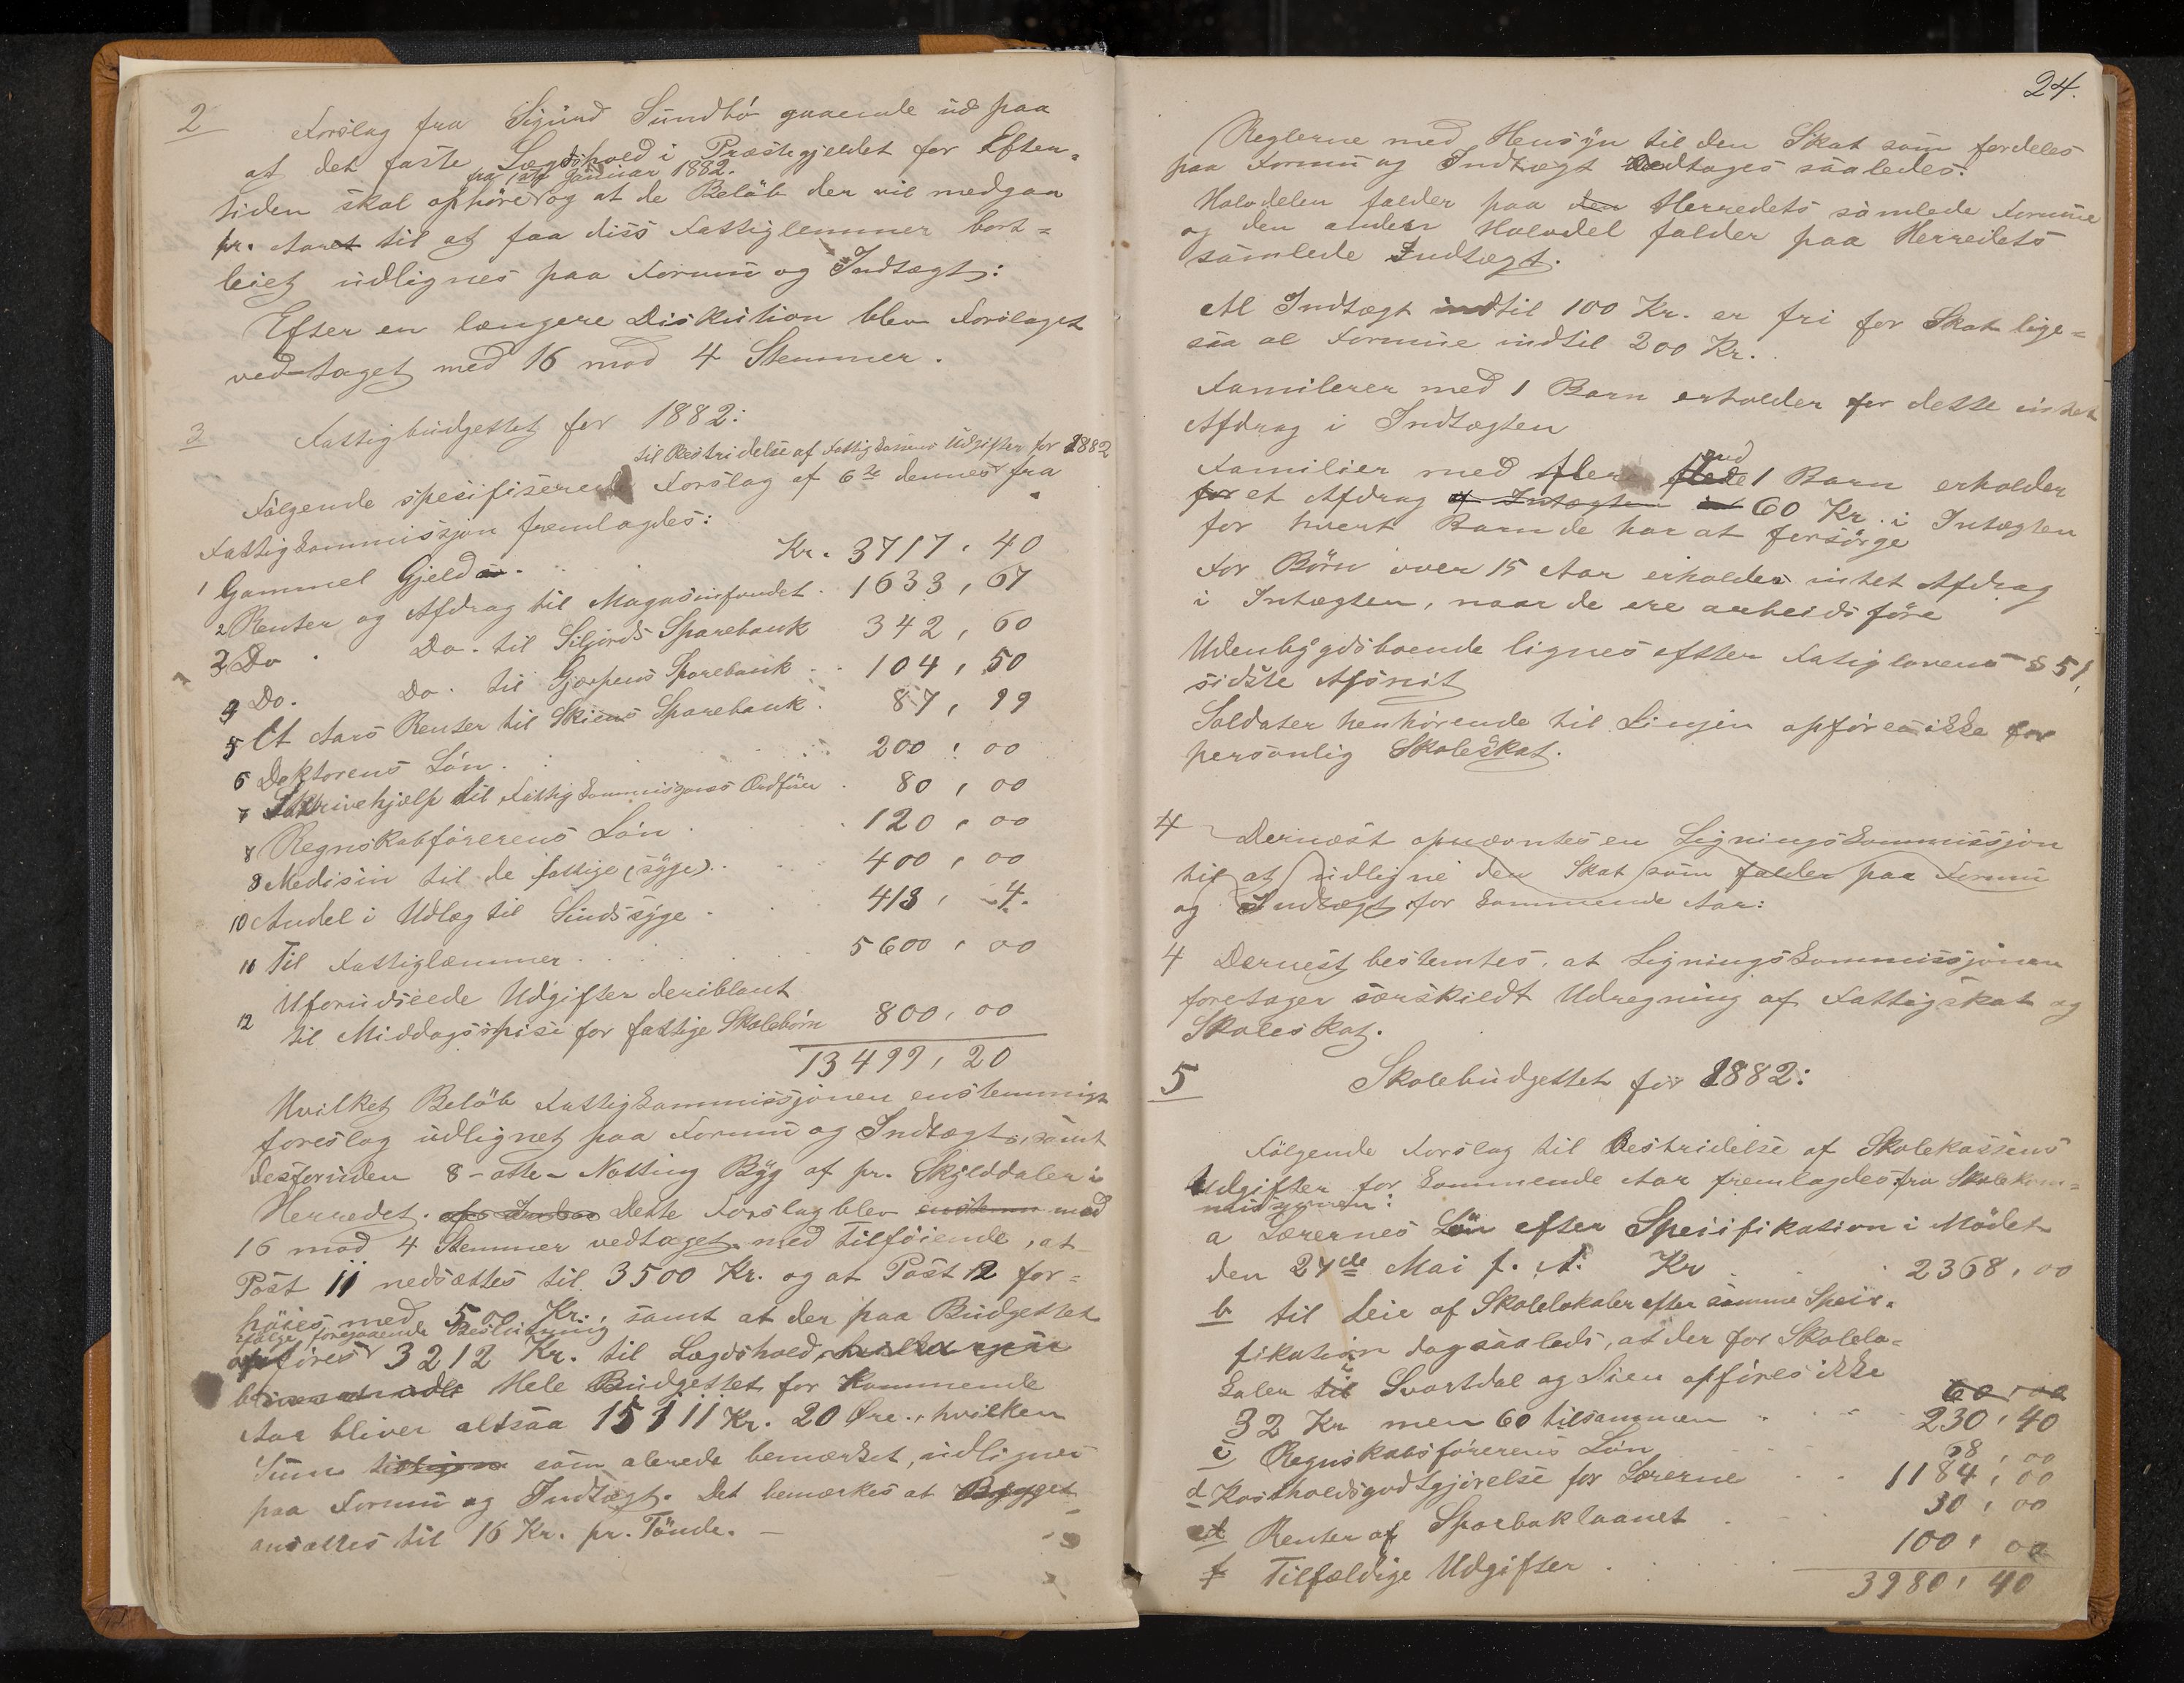 2 Forslag fra Sigurd Sundbö gaaende ud paa
at det faste Lægdshold i Præstegjeldet for Eften-
fra 1ste Januar 1882.
tiden skal ophöre og at de Belöb der vil medgaa
pr. Aaret til at faa diss Fattiglemmer bort=
leiet udlignes paa Formu og Indtægt:
Efter en længere Diskution blev Forslaget
vedtaget med 16 mod 4 Stemmer.
3 Fattigbudgettet for 1882:
til Bestridelse af Fattigkassens Udgifter for 1882
Fölgende spesifiserede Forslag af 6te dennes fra
Fattigkommissjon fremlagdes:
1 Gammel Gjeld Kr. 3717, 40
2 Renter og Afdrag til Magasinfondet. 1633, 67
3 Do. Do. til Siljords Sparebank 342, 60
4 Do. Do. til Gjerpens Sparebank 104, 50
5 Et Aars Renter til Skiens Sparebank. 87, 99
6 Doktorens Lön. 200, 00
7 Skrivehjælp til Fattigkommisjonens Ordförer 80, 00
8 Regnskabförerens Lön 120, 00
8 Medisin til de fattige (syge). 400, 00
10 Andel i Udlæg til Sindssyge 413, 4.
11 Til Fattiglæmmer 5600, 00
12 Uforudseede Udgifter deriblant
til Middagsspise for fattige Skolebörn 800, 00
13499, 20
Hvilket Belöb Fattigkommissjonen enstemmigt
foreslog udlignet paa Formu og Indtægt, samt
desforuden 8-otte- Notting Byg af pr. Skylddaler i
Herredet. Dette Forslag blev enstemm med
16 mod 4 Stemmer vedtaget med Tilföiende, at
Post 11 nedsættes til 3500 Kr. og at Post 12 for=
höies med 500 Kr., samt at der paa Budgettet
ifölge foregaaende Beslutning
opföres 3212 Kr. til Lægdshold,
Hele Budgettet for Kommende
Aar bliver altsaa 15111 Kr. 20 Öre, hvilken
Sum som alerede bemærket, udlignes
paa Formu og Indtægt. Det bemærkes at Bygget
ansættes til 16 Kr. pr. Tönde. —
24.
Reglerne med Hensyn til den Skat som fordeles
paa Formu og Indtægt vedtoges saaledes:
Halvdelen falder paa den Herredets samlede Formue
og den anden Halvdel falder paa Herredets
samlede Indtægt.
Al Indtægt indtil 100 Kr. er fri for Skat lige=
saa al Formue indtil 200 Kr.
Familerer med 1 Barn erholder for dette intet
Afdrag i Indtægten
Familier med flere end 1 Barn erholder
for et Afdrag af Intægten 60 Kr. i Intægten
for hvert Barn de har at forsörge
For Börn over 15 Aar erholdes intet Afdrag
i Intægten, naar de ere arbeidsföre
Udenbygdsboende lignes efter Fatiglovens § 51,
sidste Afsnit
Soldater henhörende til Linjen opföres ikke for
personlig Skoleskat.
4 Dernæst opnævntes en Ligningskommissjon
til at udligne den Skat som falder paa Formu
og Indtægt for kommende Aar:
4 Dernest bestemtes, at Ligningskommissjonen
foretager særskildt Udregning af Fattigskat og
Skoleskat.
5 Skolebudgettet for 1882:
Fölgende Forslag til Bestridelse af Skolekassens
Udgifter for kommende Aar fremlagdes fra Skolekom=
misjonen:
a Lærernes Lön efter Spesifikation i Mödet
den 24de Mai f. A. Kr 2368, 00
b til Leie af Skolelokaler efter samme Spesi-
fikation dog saaleds, at der for Skolelo-
kaler i Svartdal og Lien opföres ikke
60, 00
32 Kr men 60 tilsammen 230, 40
c Regnskabsförerens Lön 68, 00
d Kostholdsgodtgjörelse for Lærerne 1184, 00
e Renter af Sparbaklaanet 30, 00
f Tilfældige Udgifter 100, 00
3980, 40